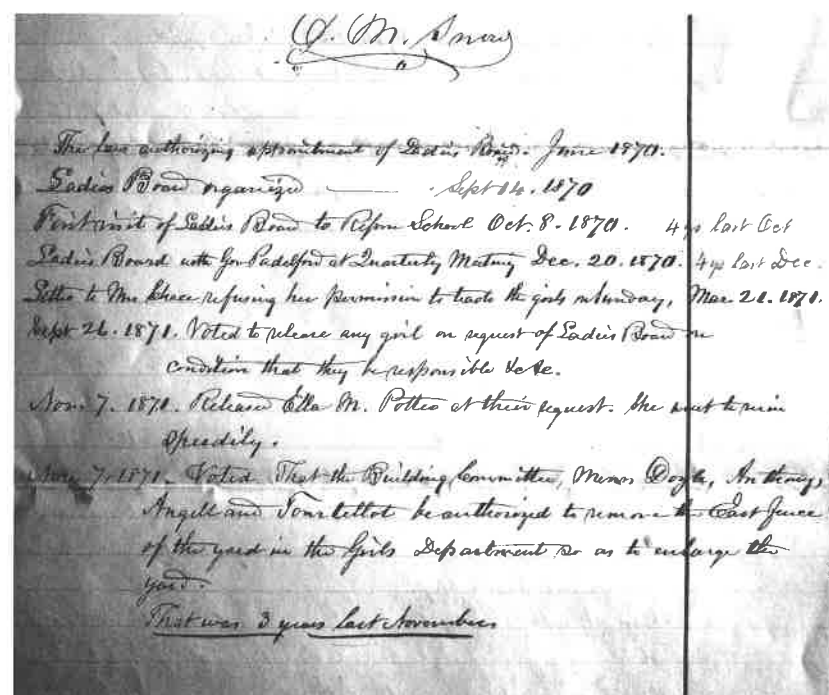 M. Snow
The law authorizing appointment of Ladies Board. June 1870.
Ladies Board organized — Sept 14. 1870
First visit of Ladies Board to Reform School Oct. 8. 1870. 4 yrs last Oct
Ladies Board with Gov Padelford at Quarterly Meeting Dec. 20. 1870. 4 yrs last Dec.
Letter to Mrs Chace refusing her permission to teach the girls on Sunday, Mar. 21. 1871.
Sept 26. 1871. Voted to release any girl on request of Ladies Board on
condition that they be responsible &c &c.
Nov. 7. 1871. Released Ella M. Potter at their request. She went to ruin
speedily.
Nov. 7. 1871. Voted That the Building Committee, Messrs Doyle, Anthony,
Angell and Tourtellot be authorized to remove the East fence
of the yard in the Girls Department so as to enlarge the
yard.
That was 3 years last November.